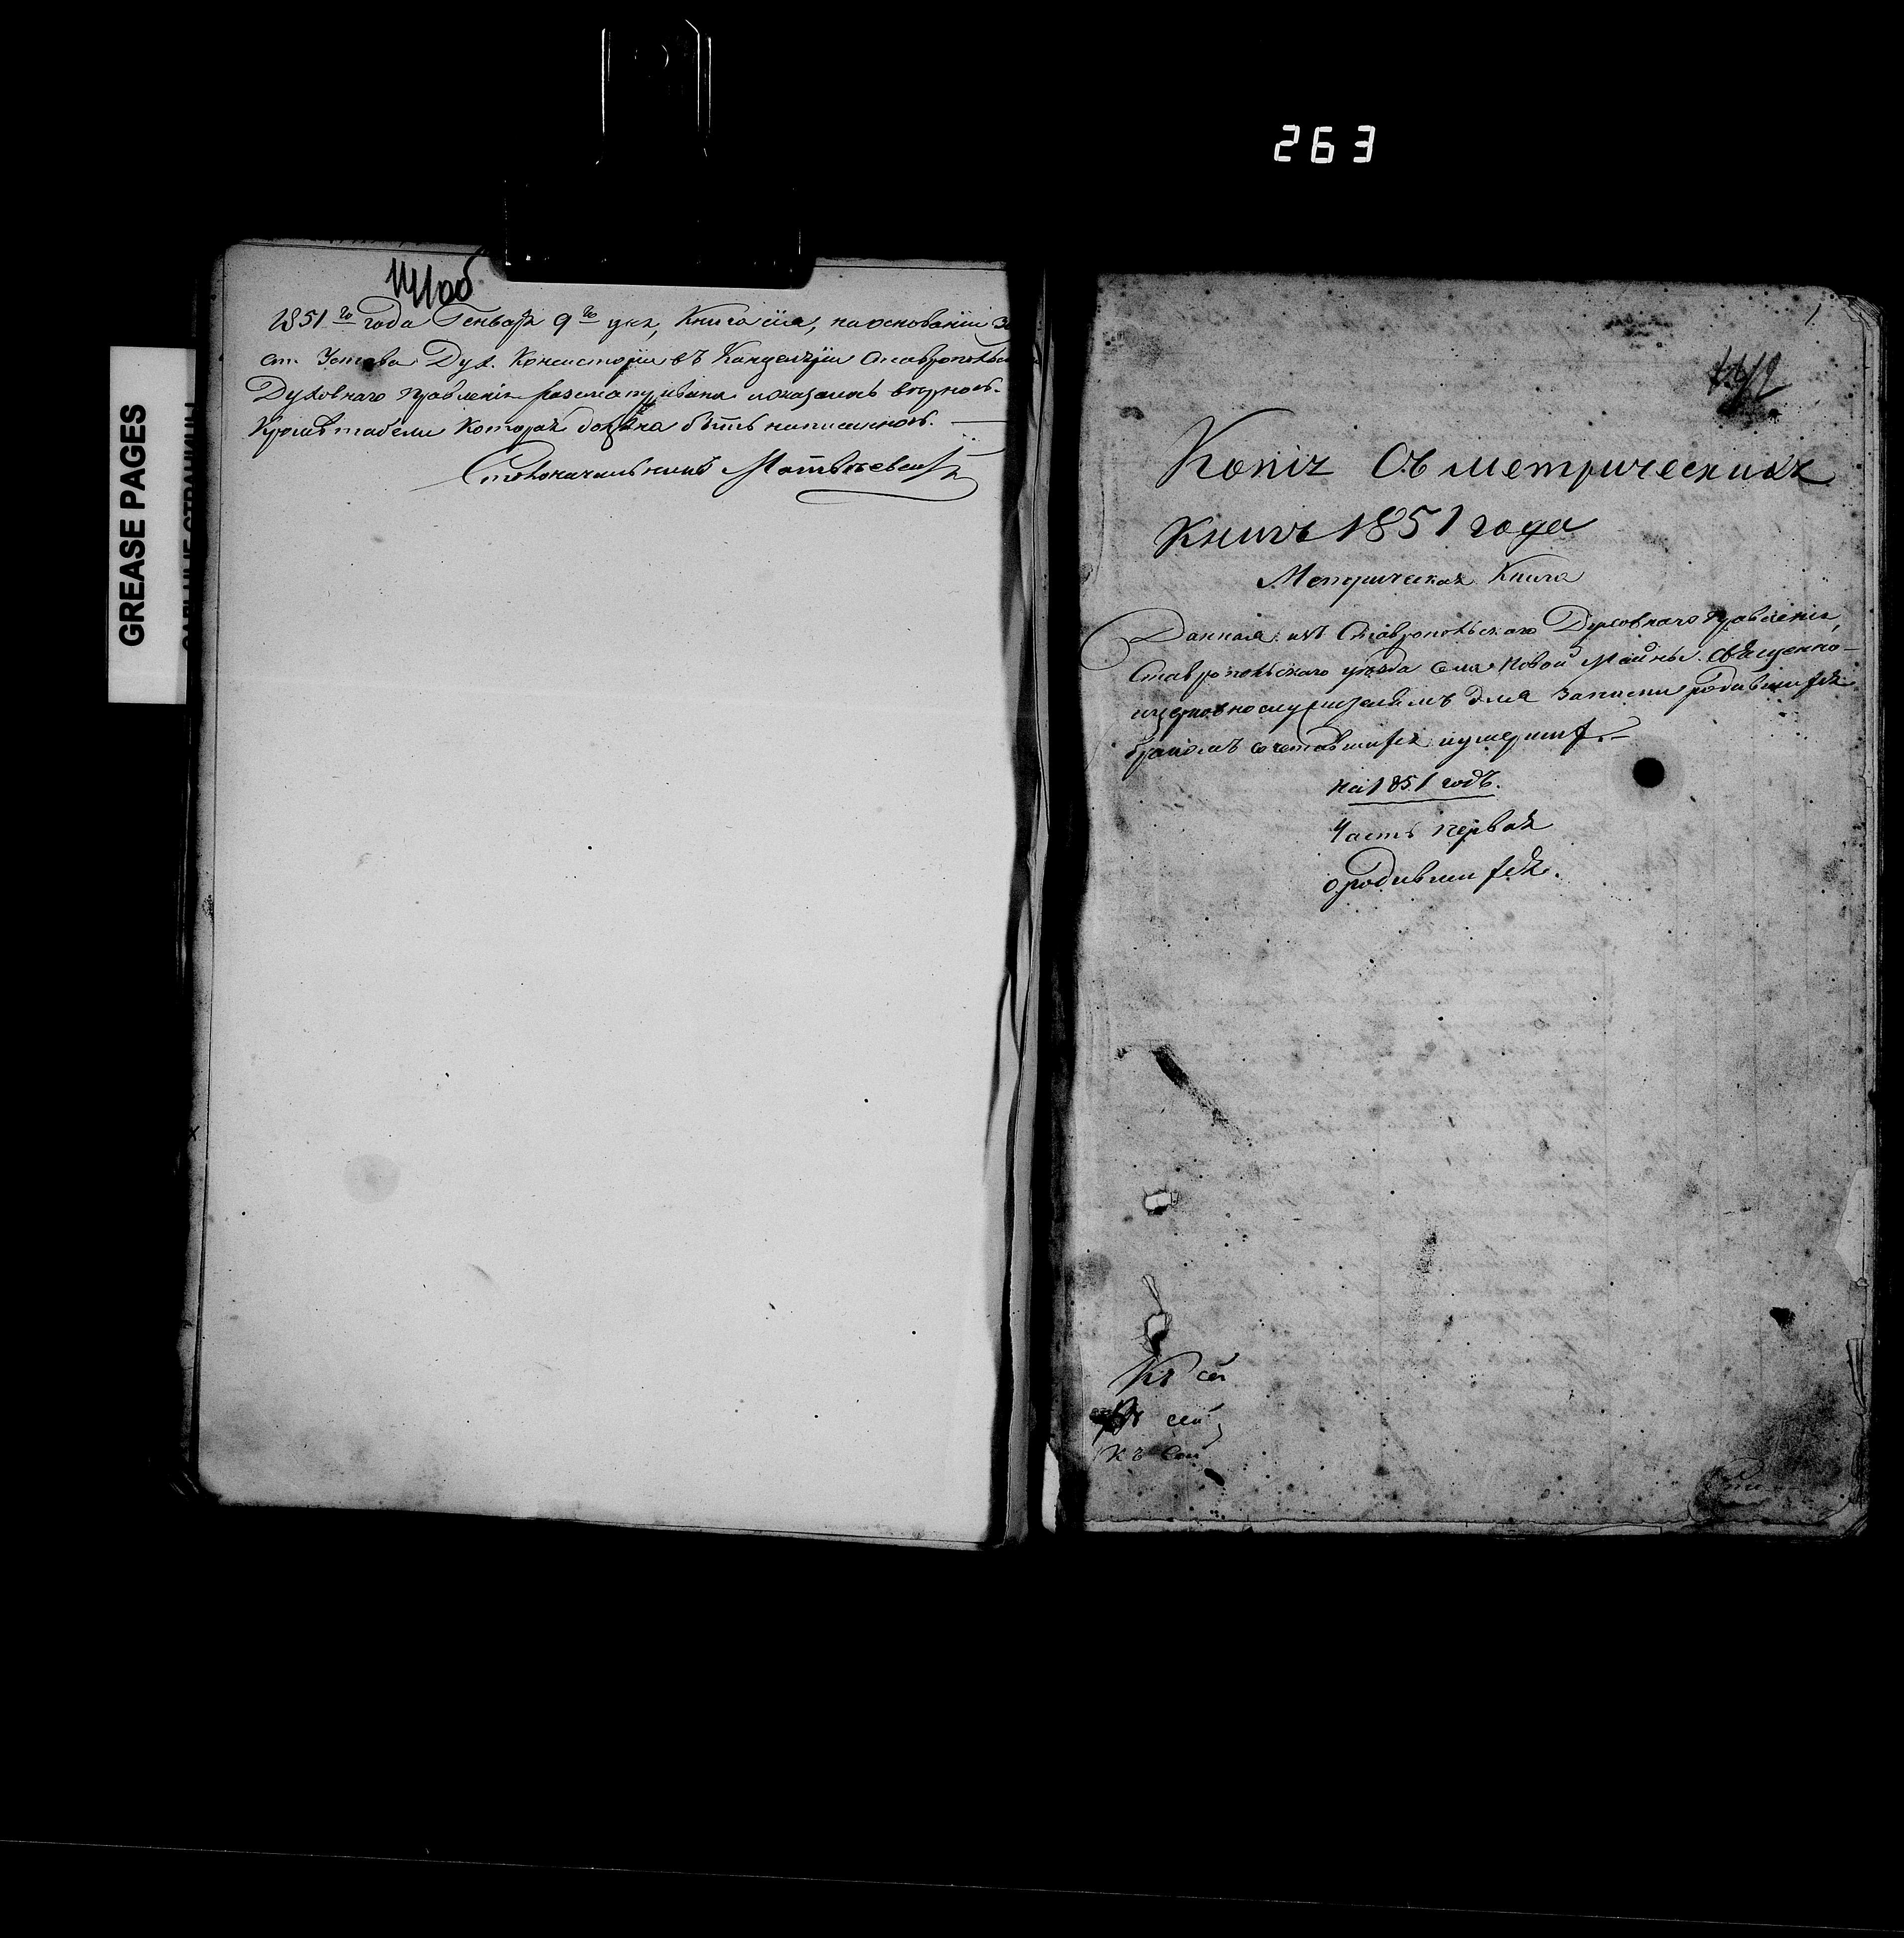 263
GREASE PAGES
141 об
1851 го года Генваря 9 го дня, Книга сія, на основаніи
ст. Устава Дух. Консисторіи въ Канцеляріи Ставропольск
Духовнаго Правленія разсматривана и оказалась вѣрною.
Кромѣ табели которая должна быть написанною.
Столоначальникъ
1
Копія Съ метрическихъ
книгъ 1851 года
Метрическая Книга
Данная изъ Ставропольскаго Духовнаго Правленія,
Ставропольскаго уѣзда села Новой Майны Священно-
церковнослужителямъ для записки родившихся
бракомъ сочетавшихся и умершихъ.
на 1851 годъ.
Часть первая
о родившихся.
Къ сей
сей
къ сей